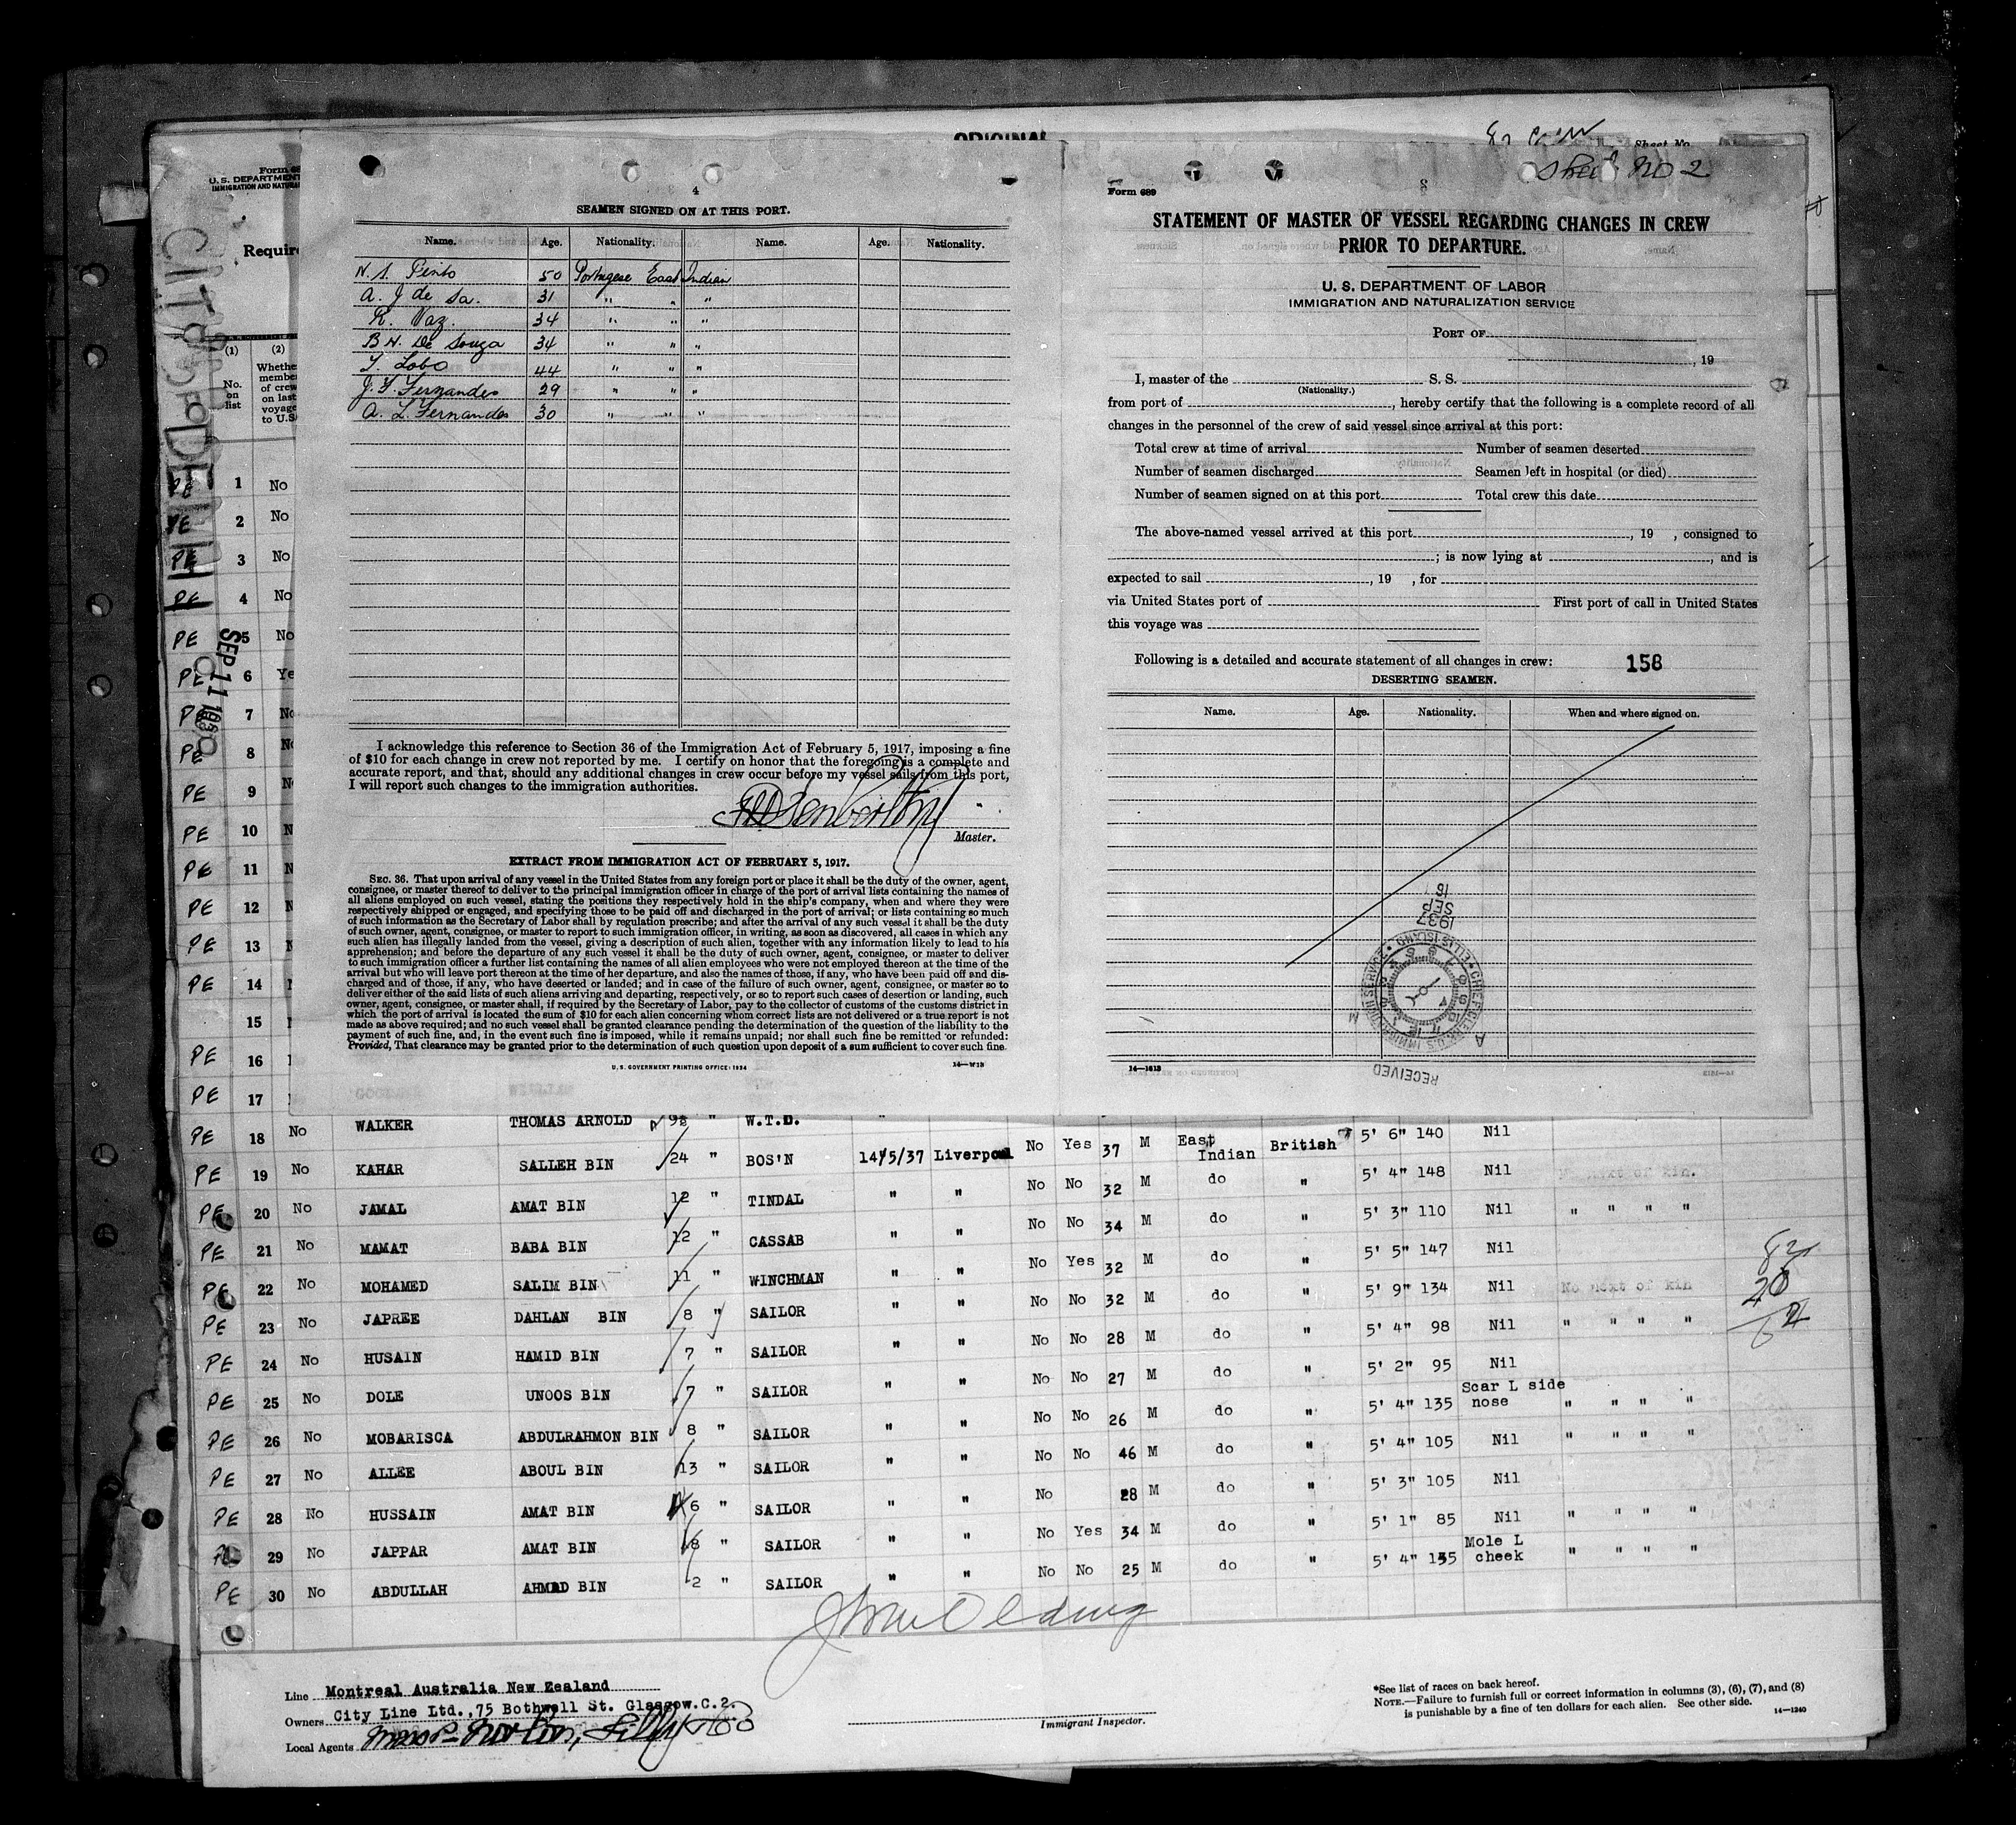 Sheet No 2
Form 689
U. S. DEPARTMENT
IMMIGRATION AND
Require
(1) (2)
No. on list
Whether member of crew on last voyage to U.S.
CITY OF DELHI
SEP 11
4
SEAMEN SIGNED ON AT THIS PORT.
Name. Age. Nationality. Name. Age. Nationality.
N. S. Pinto 50 Portugese East Indian
A. J de Sa. 31 " " "
R. Vaz. 34 " " "
B N. De Souza 34 " " "
T. Lobo 44 " " "
J. F. Fernandes 29 " " "
A. L. Fernandes 30 " " "
I acknowledge this reference to Section 36 of the Immigration Act of February 5, 1917, imposing a fine
of $10 for each change in crew not reported by me. I certify on honor that the foregoing is a complete and
accurate report, and that, should any additional changes in crew occur before my vessel sails from this port,
I will report such changes to the immigration authorities.
Master.
EXTRACT FROM IMMIGRATION ACT OF FEBRUARY 5, 1917.
SEC. 36. That upon arrival of any vessel in the United States from any foreign port or place it shall be the duty of the owner, agent,
consignee, or master thereof to deliver to the principal immigration officer in charge of the port of arrival lists containing the names of
all aliens employed on such vessel, stating the positions they respectively hold in the ship's company, when and where they were
respectively shipped or engaged, and specifying those to be paid off and discharged in the port of arrival; or lists containing so much
of such information as the Secretary of Labor shall by regulation prescribe; and after the arrival of any such vessel it shall be the duty
of such owner, agent, consignee, or master to report to such immigration officer, in writing, as soon as discovered, all cases in which any
such alien has illegally landed from the vessel, giving a description of such alien, together with any information likely to lead to his
apprehension; and before the departure of any such vessel it shall be the duty of such owner, agent, consignee, or master to deliver
to such immigration officer a further list containing the names of all alien employees who were not employed thereon at the time of the
arrival but who will leave port thereon at the time of her departure, and also the names of those, if any, who have been paid off and dis-
charged and of those, if any, who have deserted or landed; and in case of the failure of such owner, agent, consignee, or master so to
deliver either of the said lists of such aliens arriving and departing, respectively, or so to report such cases of desertion or landing, such
owner, agent, consignee, or master shall, if required by the Secretary of Labor, pay to the collector of customs of the customs district in
which the port of arrival is located the sum of $10 for each alien concerning whom correct lists are not delivered or a true report is not
made as above required; and no such vessel shall be granted clearance pending the determination of the question of the liability to the
payment of such fine, and, in the event such fine is imposed, while it remains unpaid; nor shall such fine be remitted or refunded:
Provided, That clearance may be granted prior to the determination of such question upon deposit of a sum sufficient to cover such fine.
U. S. GOVERNMENT PRINTING OFFICE: 1934 14—W13
Form 689
STATEMENT OF MASTER OF VESSEL REGARDING CHANGES IN CREW
PRIOR TO DEPARTURE.
U. S. DEPARTMENT OF LABOR
IMMIGRATION AND NATURALIZATION SERVICE
PORT OF
, 19
I, master of the S. S.
(Nationality.)
from port of , hereby certify that the following is a complete record of all
changes in the personnel of the crew of said vessel since arrival at this port:
Total crew at time of arrival Number of seamen deserted
Number of seamen discharged Seamen left in hospital (or died)
Number of seamen signed on at this port Total crew this date
The above-named vessel arrived at this port , 19 , consigned to
; is now lying at , and is
expected to sail , 19 , for
via United States port of First port of call in United States
this voyage was
Following is a detailed and accurate statement of all changes in crew: 158
DESERTING SEAMEN.
Name. Age. Nationality. When and where signed on.
1937 SEP 16
RECEIVED
CHIEF CLERK U.S. IMMIGRATION SERVICE • ELLIS ISLAND •
14—1613
PE 1 No
PE 2 No
PE 3 No
PE 4 No
PE 5 No
PE 6 Ye
PE 7 No
PE 8 No
PE 9 N
PE 10 N
PE 11 N
PE 12 N
PE 13
PE 14
15
PE 16
PE 17
PE 18 No WALKER THOMAS ARNOLD 9½ " W.T.D. "
PE 19 No KAHAR SALLEH BIN 24 " BOS'N 14/5/37 Liverpool No Yes 37 M East Indian British 5' 6" 140 Nil
PE 20 No JAMAL AMAT BIN 12 " TINDAL " " No No 32 M do " 5' 4" 148 Nil No next of kin.
PE 21 No MAMAT BABA BIN 12 " CASSAB " " No No 34 M do " 5' 3" 110 Nil " " " "
PE 22 No MOHAMED SALIM BIN 11 " WINCHMAN " " No Yes 32 M do " 5' 5" 147 Nil
PE 23 No JAPREE DAHLAN BIN 8 " SAILOR " " No No 32 M do " 5' 9" 134 Nil No next of kin
PE 24 No HUSAIN HAMID BIN 7 " SAILOR " " No No 28 M do " 5' 4" 98 Nil " " " "
PE 25 No DOLE UNOOS BIN 7 " SAILOR " " No No 27 M do " 5' 2" 95 Nil
PE 26 No MOBARISCA ABDULRAHMON BIN 8 " SAILOR " " No No 26 M do " 5' 4" 135 Scar L side nose " " " "
PE 27 No ALLEE ABOUL BIN 13 " SAILOR " " No No 46 M do " 5' 4" 105 Nil " " " "
PE 28 No HUSSAIN AMAT BIN 6 " SAILOR " " No 28 M do " 5' 3" 105 Nil
PE 29 No JAPPAR AMAT BIN 8 " SAILOR " " No Yes 34 M do " 5' 1" 85 Nil " " " "
PE 30 No ABDULLAH AHMAD BIN 2 " SAILOR " " No No 25 M do " 5' 4" 135 Mole L cheek " " " "
82
20
62
Line Montreal Australia New Zealand
Owners City Line Ltd.,75 Bothwell St. Glasgow.C.2.
Local Agents Messrs Norton, Lilly & Co
Immigrant Inspector.
*See list of races on back hereof.
NOTE.—Failure to furnish full or correct information in columns (3), (6), (7), and (8)
is punishable by a fine of ten dollars for each alien. See other side.
14—1240